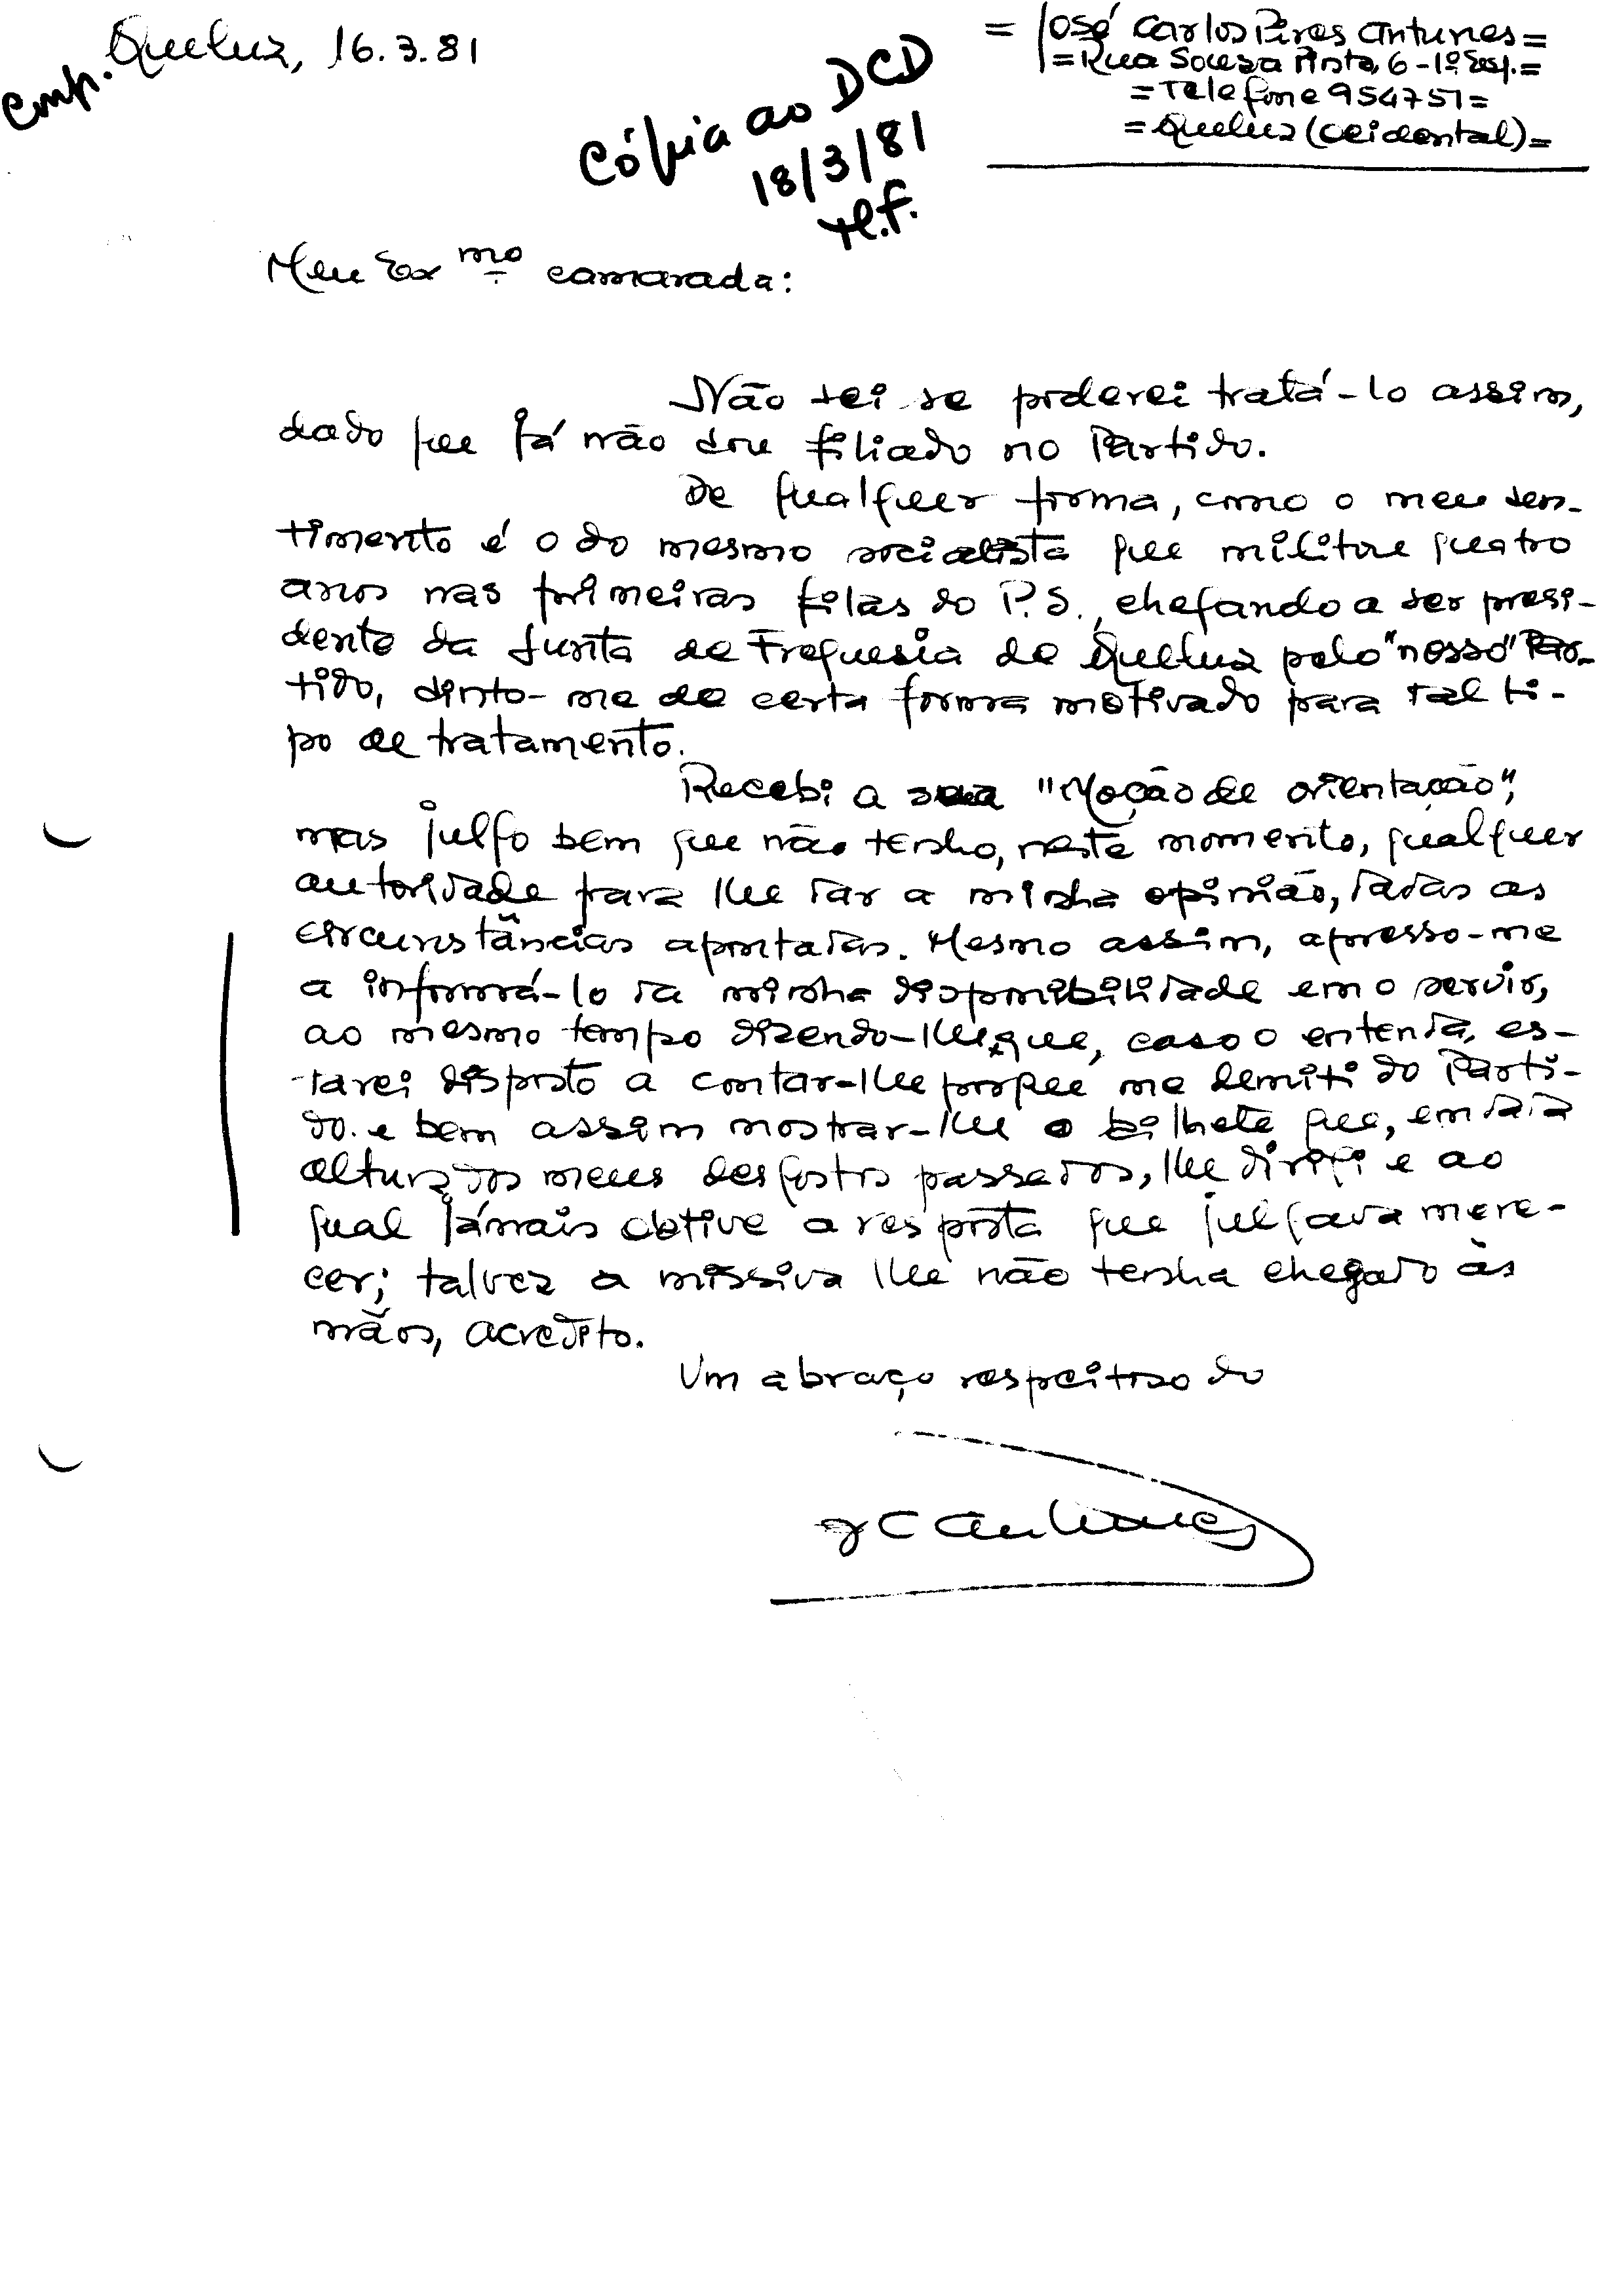 Queluz, 16.3.81
= José Carlos Pires Antunes =
= Rua Sousa Pinto, 6 - 1º Esq. =
= Telefone 954751 =
= Queluz (Ocidental) =
Cópia ao DCD
18/3/81
Meu Exmo camarada:
Não sei se poderei tratá-lo assim,
dado que já não sou filiado no Partido.
De qualquer forma, como o meu sen-
timento é o do mesmo socialista que militou quatro
anos nas primeiras filas do P.S., chegando a ser presi-
dente da Junta de Freguesia de Queluz pelo "nosso" Par-
tido, sinto-me de certa forma motivado para tal ti-
po de tratamento.
Recebi a sua "Moção de orientação",
mas julgo bem que não tenho, neste momento, qualquer
autoridade para lhe dar a minha opinião, dadas as
circunstâncias apontadas. Mesmo assim, apresso-me
a informá-lo da minha disponibilidade em o servir,
ao mesmo tempo dizendo-lhe que, caso o entenda, es-
tarei disposto a contar-lhe porque me demiti do Parti-
do e bem assim mostrar-lhe o bilhete que, em dada
altura dos meus desgostos passados, lhe dirigi e ao
qual jámais obtive a resposta que julgava mere-
cer; talvez a missiva lhe não tenha chegado às
mãos, acredito.
Um abraço respeitoso do
JC Antunes